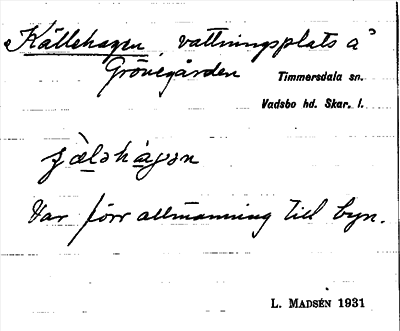 Källehagen, vattningsplats å
Grönegården
Timmersdala sn.
Vadsbo hd. Skar. l.
Var förr allmänning till byn.
L. MADSÉN 1931